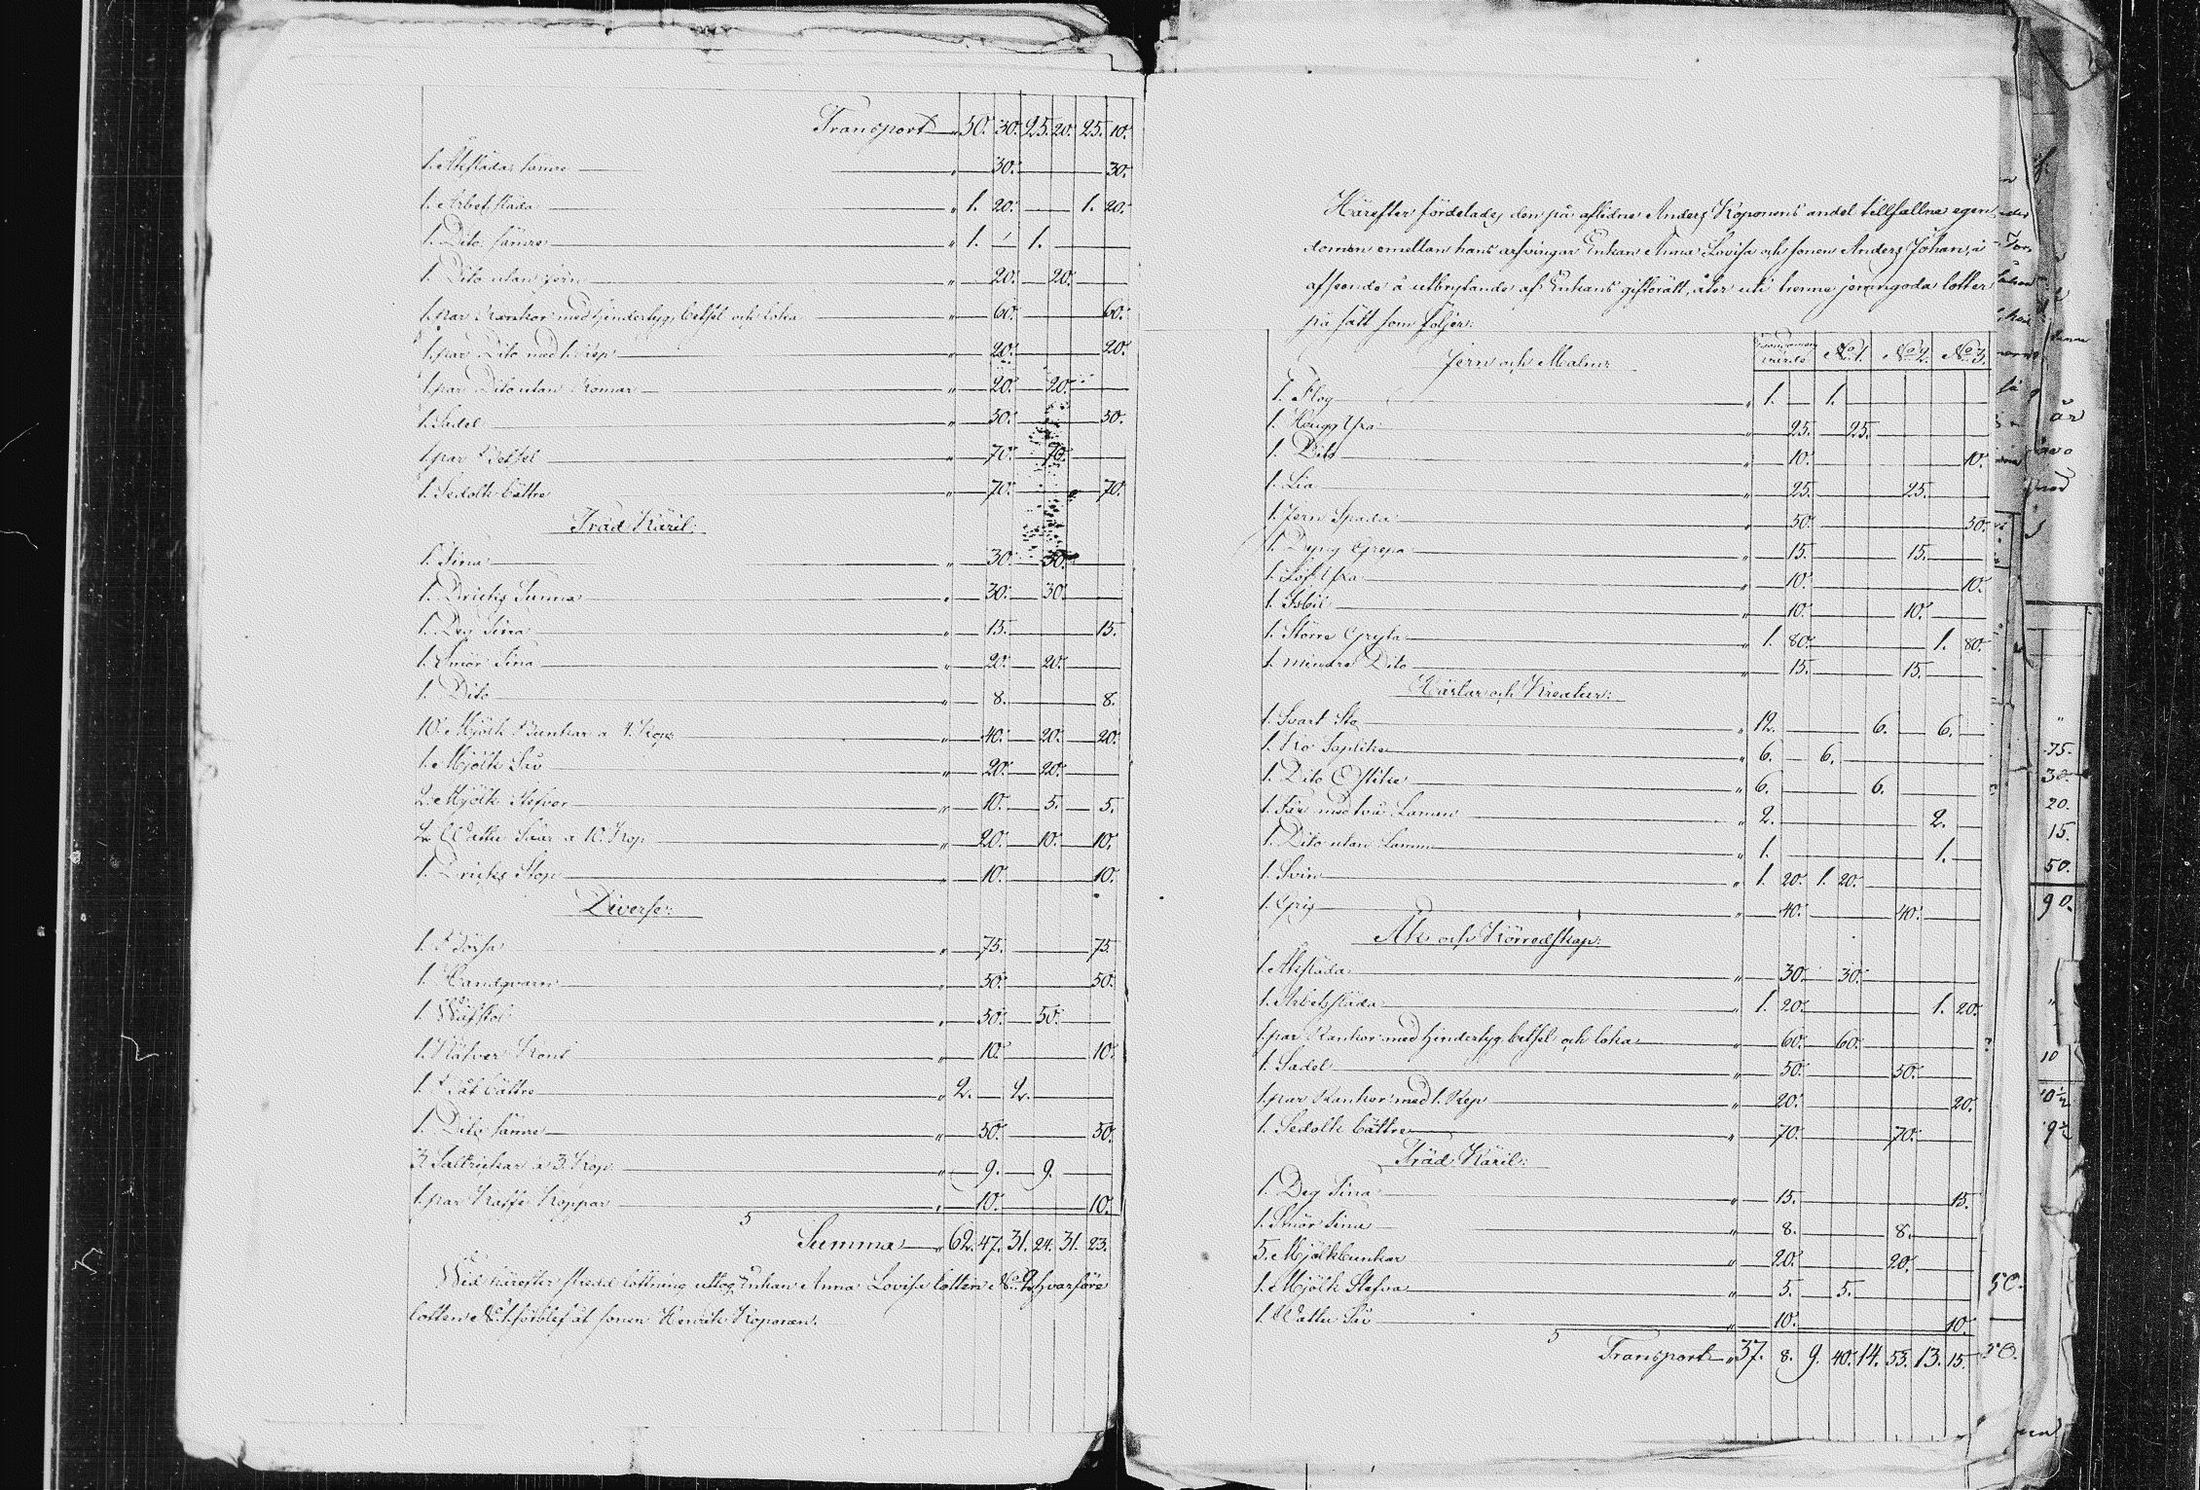 Transport " 50. 30. 25. 20. 25. 10.
1. Åkslädas sämre " 30. 30.
1. Arbetsläda " 1. 20. 1. 20.
1. Dito sämre " 1. 1.
1. Dito utan jern " 20. 20.
1. par Rankor med hindertyg, betsel och loka " 60. 60.
1. par Dito med 1. Rep " 20. 20.
1. par Dito utan Romar " 20. 20.
1. Sadel " 50. 50.
1. par Betsel " 70. 70.
1. Sedolk bättre " 70. 70.
Träd Käril:
1. Tina " 30. 30.
1. Dricks Tunna " 30. 30.
1. Deg Tina " 15. 15.
1. Smör Tina " 20. 20.
1. Dito " 8. 8.
10. Mjölk Bunkar a 4. Kop " 40. 20. 20.
1. Mjölk Så " 20. 20.
2. Mjölk Stefvor " 10. 5. 5.
2. Wattu Såar a 10. Kop " 20. 10. 10.
1. Dricks Stop " 10. 10.
Diverse:
1. Börsa " 75. 75.
1. Handqvarn " 50. 50.
1. Wäfstol " 50. 50.
1. Näfver Kont " 10. 10.
1. Båt bättre " 2. 2.
1. Dito sämre " 50. 50.
3. a 3. Kop " 9. 9.
1. par Kaffe Koppar " 10. 10.
Summa " 62. 47. 31. 24. 31. 23.
Wid härefter skedd lottning uttog Enkan Anna Lovisa lotten No 2. hvarföre
lotten No 1. förblef åt sonen Henrik Koponen.
Härefter fördelades den på aflidne Anders Koponens andel tillfallna egen
domen emellan hans arfvingar Enkan Anna Lovisa och sonen Anders Johan, i
afseende å utbrytande af Enkans giftorätt, åter uti trenne jemngoda lotter
på sätt som följer:
Jern och Malm: Egendomens värde No 1. No 2. No 3.
1. Plog " 1. 1.
1. Hugg Yxa " 25. 25.
1. Dito " 10. 10.
1. Lia " 25. 25.
1. Jern Spada " 50. 50.
1. Dyng Grepa " 15. 15.
1. Löf Yxa " 10. 10.
1. Isbil " 10. 10.
1. Större Gryta " 1. 80. 1. 80.
1. mindre Dito " 15. 15.
Hästar och Kreatur:
1. Svart Sto " 12. 6. 6.
1. Ko " 6. 6.
1. Dito " 6. 6.
1. Får med två Lamm " 2. 2.
1. Dito utan Lamm " 1. 1.
1. Svin " 1. 20. 1. 20.
1. Gris " 40. 40.
Åk och Körredskap:
1. Åksläda " 30. 30.
1. Arbetsläda " 1. 20. 1. 20.
1. par Rankor med hindertyg, betsel och loka " 60. 60.
1. Sadel " 50. 50.
1. par Rankor med 1. Rep " 20. 20.
1. Sedolk bättre " 70. 70.
Träd Käril:
1. Deg Tina " 15. 15.
1. Smör Tina " 8. 8.
5. Mjölkbunkar " 20. 20.
1. Mjölk Stefva " 5. 5.
1. Wattu Så " 10. 10.
Transport " 37. 8. 9. 40. 14. 53. 13. 15.
75.
30.
20.
15.
50.
90.
10
50.
50.